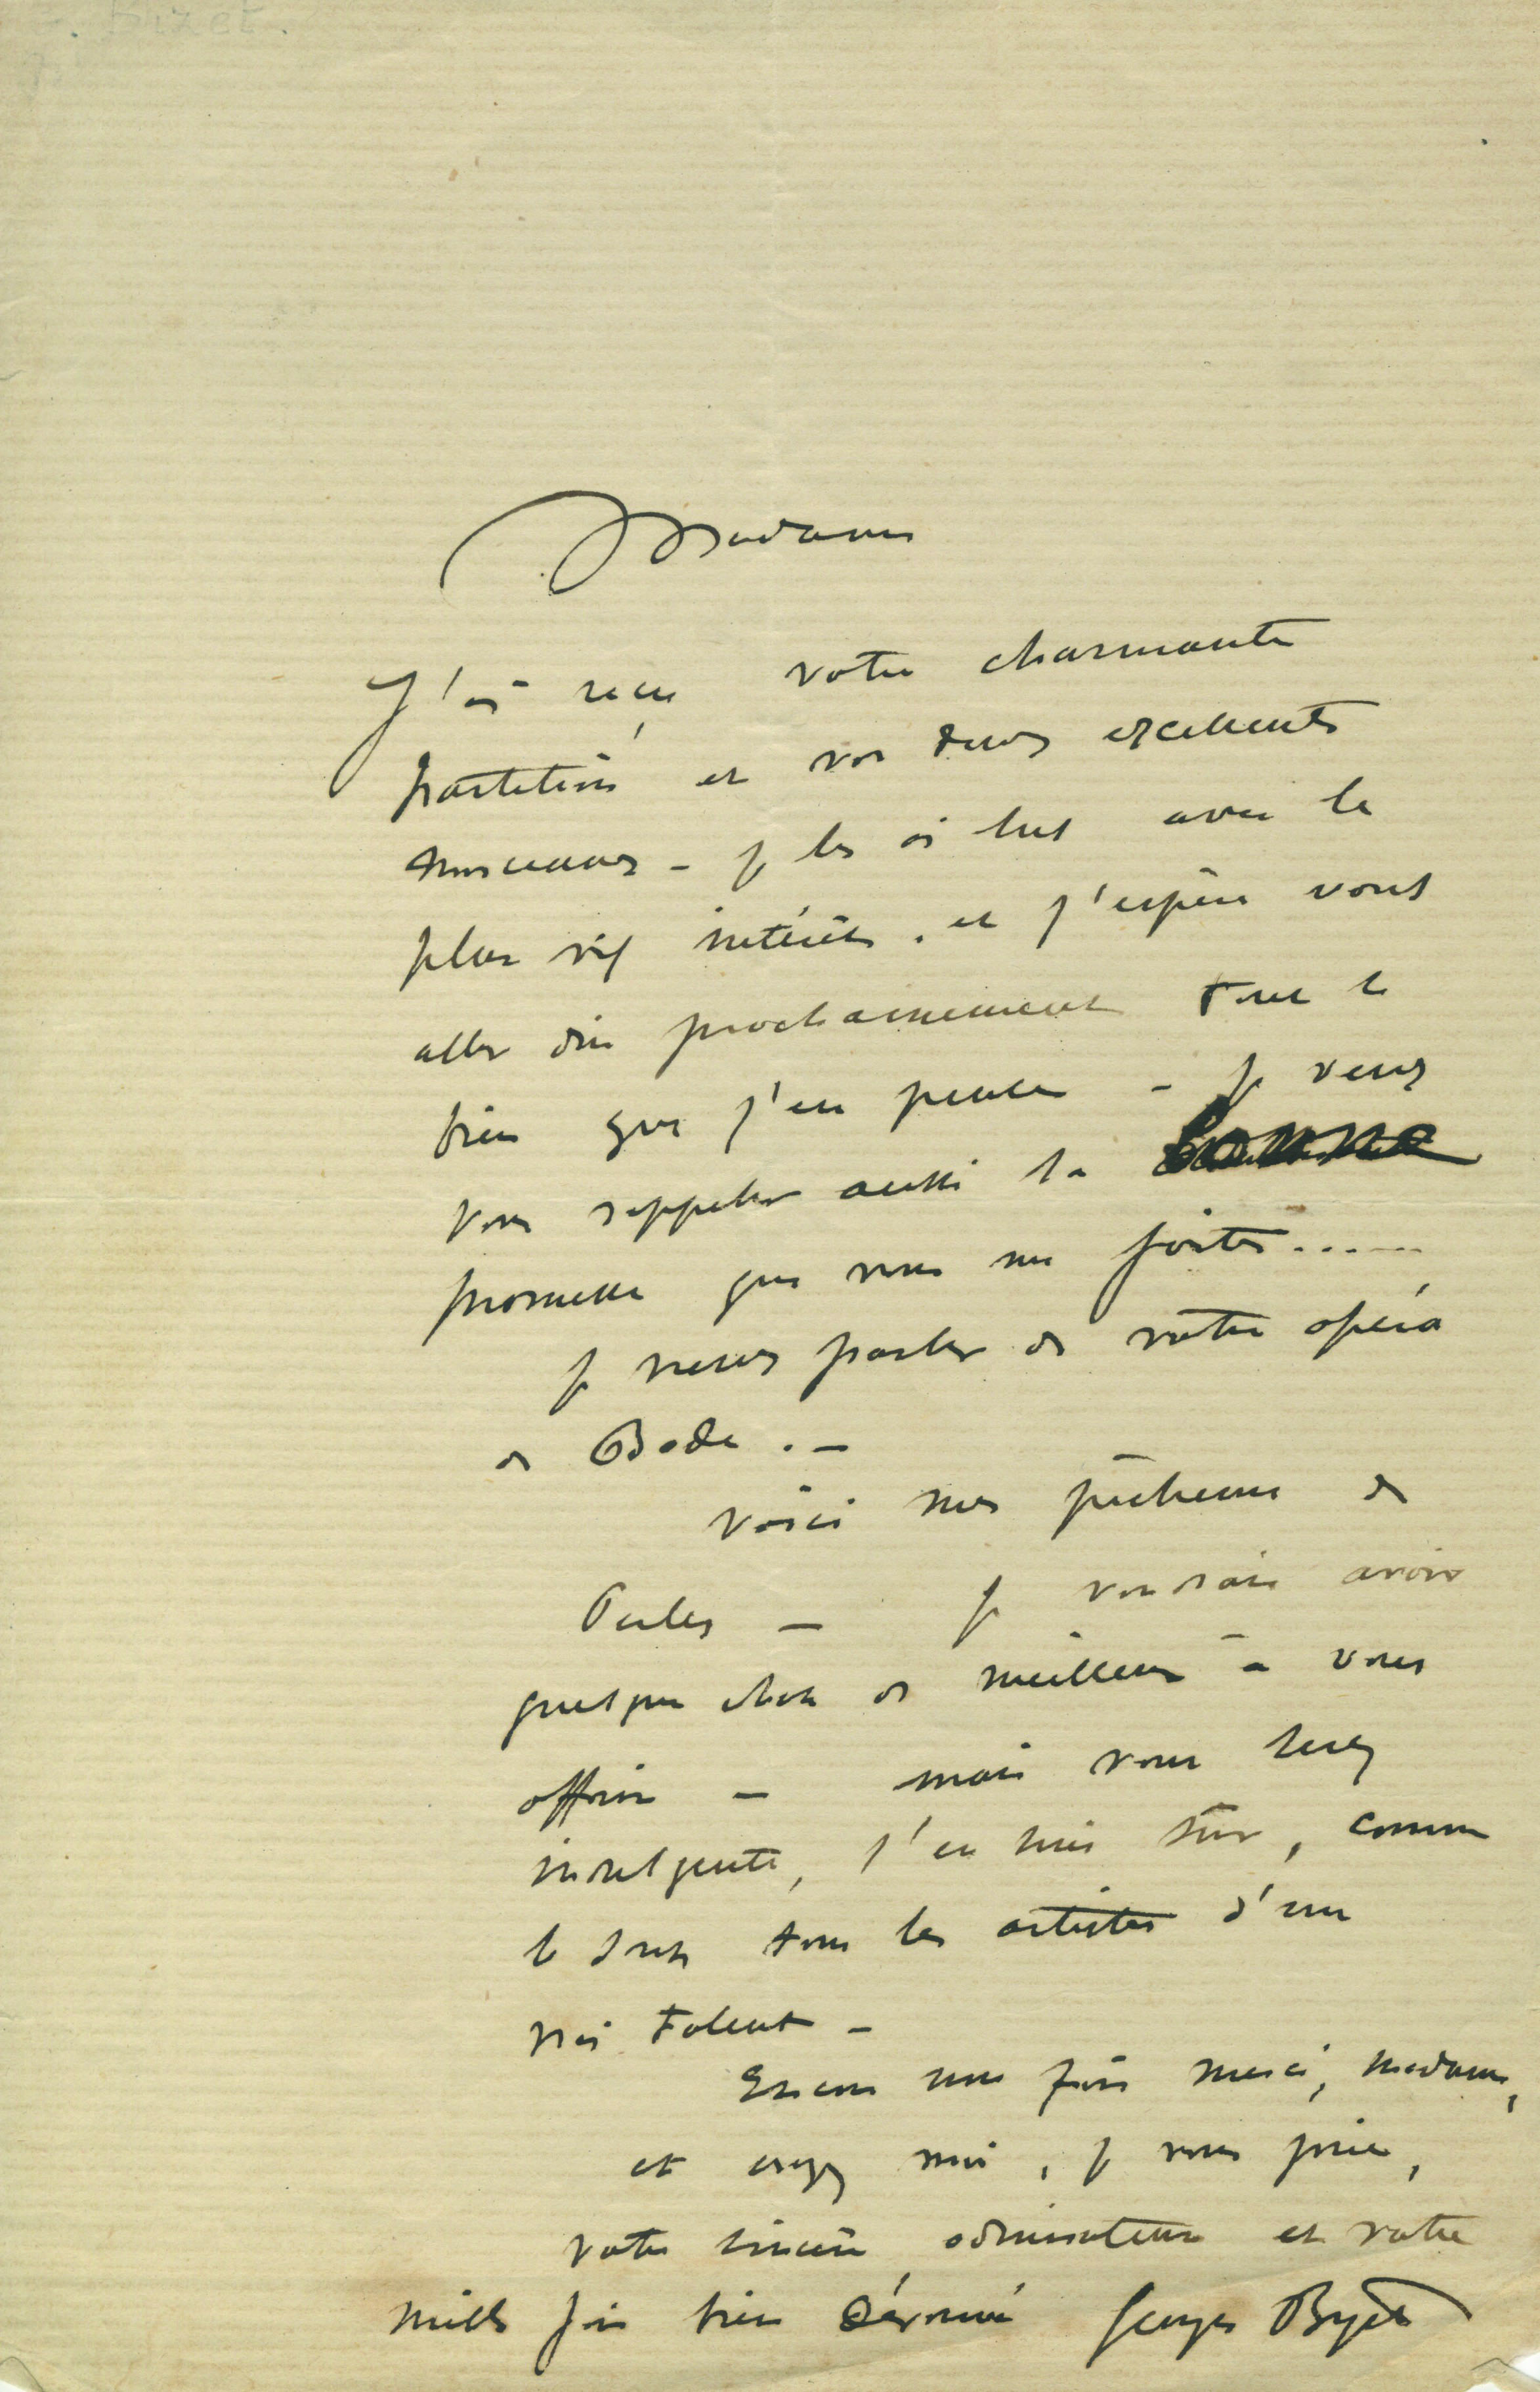 . Bizet.
Madame
J'ai reçu votre charmante
partition et vos deux excellents
morceaux - je les ai lus avec le
plus vif intérêt. et j'espère vous
aller dire prochainement tout le
bien que j'en pense - Je veux
vous rappeler aussi la bonne
promesse que vous me fîtes......
Je veux parler de votre opéra
de Bade. -
Voici mes pêcheurs de
Perles - Je voudrais avoir
quelque chose de meilleur à vous
offrir - mais vous serez
indulgente, j'en suis sûr, comme
le sont tous les artistes d'un
vrai talent -
Encore une fois merci, Madame,
et croyez moi, je vous prie,
votre sincère admirateur et votre
mille fois bien dévoué Georges Bizet